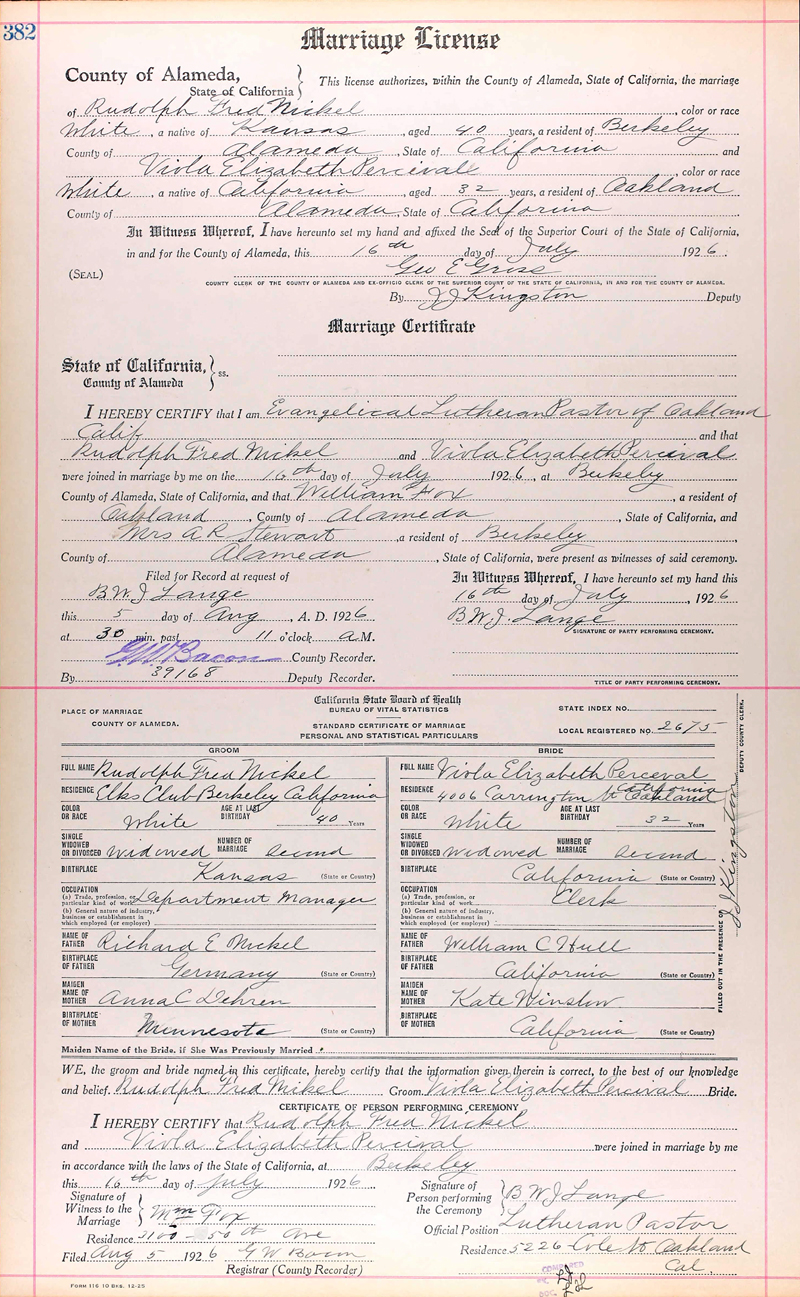 382
Marriage License
County of Alameda,
State of California
This license authorizes, within the County of Alameda, State of California, the marriage
of Rudolph Fred Nickel, color or race
White, a native of Kansas, aged 40 years, a resident of Berkeley
County of Alameda, State of California and
Viola Elizabeth Percival, color or race
White, a native of California, aged 32 years, a resident of Oakland
County of Alameda, State of California
In Witness Whereof, I have hereunto set my hand and affixed the Seal of the Superior Court of the State of California,
in and for the County of Alameda, this 16th day of July 1926.
(SEAL) Geo E Gross
COUNTY CLERK OF THE COUNTY OF ALAMEDA AND EX-OFFICIO CLERK OF THE SUPERIOR COURT OF THE STATE OF CALIFORNIA, IN AND FOR THE COUNTY OF ALAMEDA.
By J J Kingston Deputy
Marriage Certificate
State of California,
County of Alameda
ss.
I HEREBY CERTIFY that I am Evangelical Lutheran Pastor of Oakland
Calif and that
Rudolph Fred Nickel and Viola Elizabeth Percival
were joined in marriage by me on the 16th day of July 1926, at Berkeley
County of Alameda, State of California, and that William Fox, a resident of
Oakland, County of Alameda, State of California, and
Mrs A R Stewart, a resident of Berkeley,
County of Alameda, State of California, were present as witnesses of said ceremony.
Filed for Record at request of
B W J Lange
this 5 day of Aug, A. D. 1926
at 30 min. past 11 o'clock a M.
G W Bacon County Recorder.
By 39168 Deputy Recorder.
In Witness Whereof, I have hereunto set my hand this
16th day of July, 1926
B W J. Lange
SIGNATURE OF PARTY PERFORMING CEREMONY.
TITLE OF PARTY PERFORMING CEREMONY.
PLACE OF MARRIAGE
COUNTY OF ALAMEDA.
California State Board of Health
BUREAU OF VITAL STATISTICS
STANDARD CERTIFICATE OF MARRIAGE
PERSONAL AND STATISTICAL PARTICULARS
STATE INDEX NO.
LOCAL REGISTERED NO. 2675
GROOM
FULL NAME Rudolph Fred Nickel
RESIDENCE Elks Club Berkeley California
COLOR OR RACE White AGE AT LAST BIRTHDAY 40 Years
SINGLE WIDOWED OR DIVORCED Widowed NUMBER OF MARRIAGE Second
BIRTHPLACE Kansas (State or Country)
OCCUPATION
(a) Trade, profession, or particular kind of work Department Manager
(b) General nature of industry, business or establishment in which employed (or employer)
NAME OF FATHER Richard E Nickel
BIRTHPLACE OF FATHER Germany (State or Country)
MAIDEN NAME OF MOTHER Anna C Dehren
BIRTHPLACE OF MOTHER Minnesota (State or Country)
BRIDE
FULL NAME Viola Elizabeth Perceval
RESIDENCE 4006 Carrington St Oakland California
COLOR OR RACE White AGE AT LAST BIRTHDAY 32 Years
SINGLE WIDOWED OR DIVORCED Widowed NUMBER OF MARRIAGE Second
BIRTHPLACE California (State or Country)
OCCUPATION
(a) Trade, profession, or particular kind of work Clerk
(b) General nature of industry, business or establishment in which employed (or employer)
NAME OF FATHER William C Hull
BIRTHPLACE OF FATHER California (State or Country)
MAIDEN NAME OF MOTHER Kate Winslow
BIRTHPLACE OF MOTHER California (State or Country)
FILLED OUT IN THE PRESENCE OF J J Kingston DEPUTY COUNTY CLERK.
Maiden Name of the Bride, if She Was Previously Married
WE, the groom and bride named in this certificate, hereby certify that the information given therein is correct, to the best of our knowledge
and belief. Rudolph Fred Nikel Groom Viola Elizabeth Percival Bride.
CERTIFICATE OF PERSON PERFORMING CEREMONY
I HEREBY CERTIFY that Rudolph Fred Nickel
and Viola Elizabeth Percival were joined in marriage by me
in accordance with the laws of the State of California, at Berkeley
this 16th day of July 1926
Signature of Witness to the Marriage Wm Fox
Residence 3100 50th Ave
Filed Aug 5 1926 G W Bacon
Registrar (County Recorder)
Signature of Person performing the Ceremony B W J Lange
Official Position Lutheran Pastor
Residence 5226 Cole St Oakland
Cal.
FORM 116 10 BKS. 12-25
COMPARED
DOC.